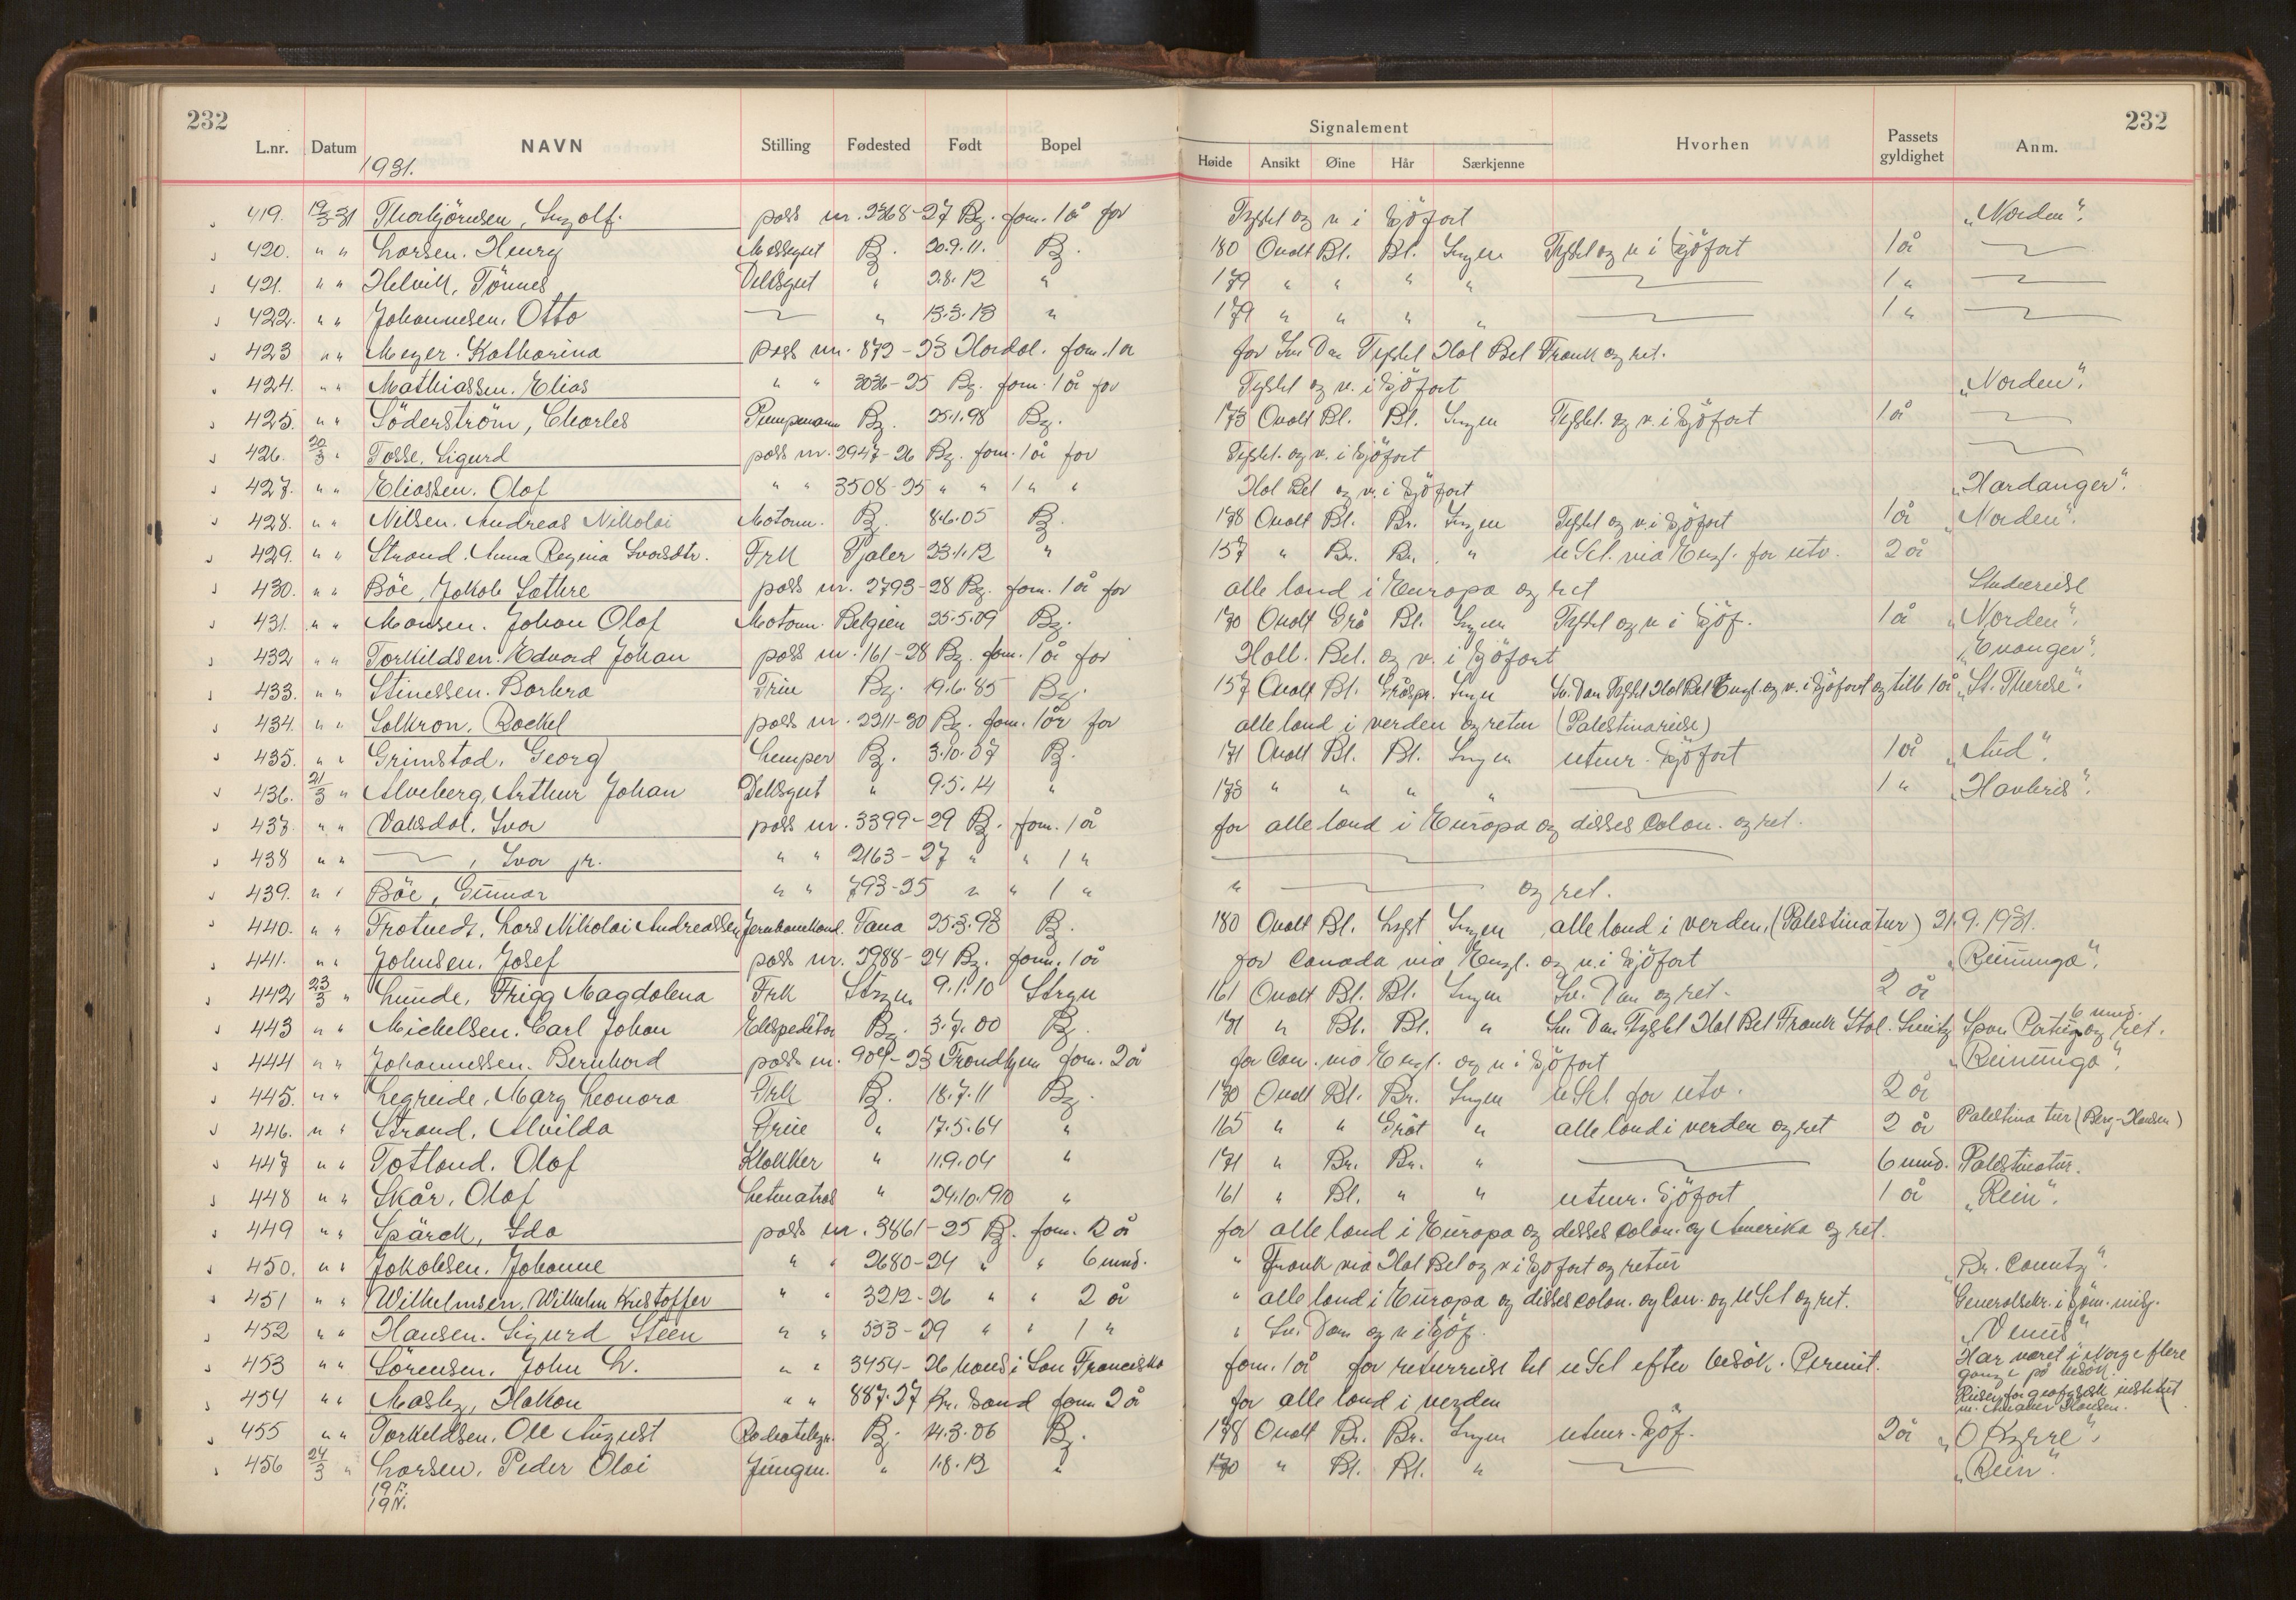 232
232
L.nr. Datum NAVN Stilling Fødested Født Bopel
Signalement
Høide Ansikt Øine Hår Særkjenne Hvorhen Passets gyldighet Anm.
1931.
419. 19/3-31 Thorbjörnsen, Ingolf. pass nr. 2368-27 Bg. forn. 1 år for Tyskl og v i Sjöfart "Norden".
420. " " Larsen. Henry Messegut Bg. 20.9.11. Bg. 180 Ovalt Bl. Bl. Ingen Tyskl og v i Sjöfart 1 år
421. " " Helvik, Tönnes Dekksgut " 2.8.12 " 179 " " " " 1 "
422. " " Johannesen. Otto " 13.3.13 " 179 " " " " 1 "
423 " " Meyer. Katharina pass nr. 872-23 Hordal. forn. 1 år for Sv Dan Tyskl Hol Bel Frank og ret.
424. " " Mathiassen. Elias " " 3036-25 Bg. forn. 1 år for Tyskl og v. i Sjöfart "Norden".
425. " " Söderström, Charles Pumpemann Bg. 25.1.98 Bg. 173 Ovalt Bl. Bl. Ingen Tyskl. og v. i Sjöfart 1 år
426. 20/3 " Tosse. Sigurd pass nr. 2947-26 Bg. forn. 1 år for Tyskl. og v. i Sjöfart
427. " " Eliassen. Olaf " " 3508-25 " " 1 " " Hol Bel og v. i Sjöfart "Hardanger".
428. " " Nilsen. Andreas Nikolai Motorm. Bg. 8.6.05 Bg. 178 Ovalt Bl. Br. Ingen Tyskl og v. i Sjöfart 1 år "Norden".
429. " " Strand. Anna Regina Ivarsdtr. Frk Fjaler 23.1.12 " 157 " Br. Br. " U St. via Engl. for utv. 2 år
430. " " Böe, Jakob Lothre pass nr. 2793-28 Bg. forn. 1 år for alle land i Europa og ret Studiereise
431. " " Monsen. Johan Olaf Motorm. Belgien 25.5.09 Bg. 170 Ovalt Grå Bl. Ingen Tyskl og v i Sjöf. 1 år "Norden".
432 " " Torkildsen. Edvard Johan pass nr. 161-28 Bg. forn. 1 år for Holl. Bel. og v. i Sjöfart "Evanger".
433. " " Stinessen. Borbra Frue Bg. 19.6.85 Bg. 157 Ovalt Bl. Gråspr. Ingen Sv. Dan Tyskl Hol Bel Engl. og v. i Sjöfart og tilb 1 år "St. Therese".
434. " " Solkron. Rackel pass nr. 2211-30 Bg. forn. 1 år for alle land i verden og retur (Palestinareise)
435. " " Grimstad. Georg Lemper Bg. 3.10.07 Bg. 171 Ovalt Bl. Bl. Ingen utenr. Sjöfart 1 år "Aud".
436. 21/3 " Alveberg, Arthur Johan Dekksgut " 9.5.14 " 173 " " " " 1 " "Havbris".
437. " " Vaksdal. Ivar pass nr. 3399-29 Bg. forn. 1 år for alle land i Europa og disses Colon. og ret.
438 " " , Ivar jr. " " 2163-27 " " 1 "
439. " " Böe, Gunnar " " 793-25 " " 1 " " og ret.
440. " " Trotvedt. Lars Nikolai Andreassen Jernbanekond. Fana 25.3.98 Bg. 180 Ovalt Bl. Lyst Ingen alle land i verden. (Palestinatur) 21.9.1931.
441. " " Johnsen. Josef pass nr. 2988-24 Bg. forn. 1 år for Canada via Engl. og v. i Sjöfart "Reinunga".
442 23/3 " Lunde, Frigg Magdalena Frk Stryn 9.1.10 Stryn 161 Ovalt Bl. Bl. Ingen Sv. Dan og ret. 2 år
443 " " Mickelsen. Carl Johan Ekspeditør Bg. 3.7.00 Bg. 171 " Bl. Bl. " Sv. Dan Tyskl Hol Bel Frank Ital. Sveitz Span Portug og ret. 6 mnd.
444 " " Johannessen. Bernhard pass nr. 904-23 Trondhjem forn. 2 år for Can. via Engl. og v i Sjöfart "Reinunga".
445. " " Legreide, Mary Leonora Frk Bg. 18.7.11 Bg. 170 Ovalt Bl. Br. Ingen U St for utv. 2 år
446. " " Strand. Alvilda Frue " 17.5.64 " 165 " " Grått " alle land i verden og ret 2 år Palestina tur (Berg-Hansen)
447 " " Totland. Olaf Klokker " 11.9.04 " 171 " Br. Br. " 6 mnd. Palestinatur.
448 " " Skår, Olaf Letmatros " 24.10.1910 " 161 " Bl. " " utenr. Sjöfart 1 år "Rein".
449 " " Spärck, Ida pass nr. 3861-25 Bg. forn. 2 år for alle land i Europa og disses colon. og Amerika og ret.
450. " " Jakobsen. Johanne " " 2680-24 " " 6 mnd. " Frank via Hol Bel og v i Sjöfart og retur "Br. County".
451 " " Wilhelmsen, Wilhelm Kristoffer " " 3212-26 " " 2 år " alle land i Europa og disses colon. og Can. og U St og ret. Generalsekr. i Sjöm. misj.
452 " " Hansen. Sigurd Steen " " 553-29 " " 1 " " Sv. Dan og v i Sjöf. "Venus"
453 " " Sörensen. John L. " " 3454-26 Kons i San Francisko forn. 1 år for returreise til U St efter besök. Permit. Har været i Norge flere gange på besök.
454 " " Mosby, Håkon " " 887-27 Kr. Sand forn 2 år for alle land i verden Reiser for geofysisk institut
455 " " Torkildsen. Ole August Radiotelegr. Bg. 14.3.06 Bg. 178 Ovalt Br. Br. Ingen utenr. Sjöf. 2 år "O Kyrre".
456 24/3 " Larsen. Peder Olai Jungm. " 1.8.12 " 170 " Bl. Bl. " "Rein".
19 F.
19 N.